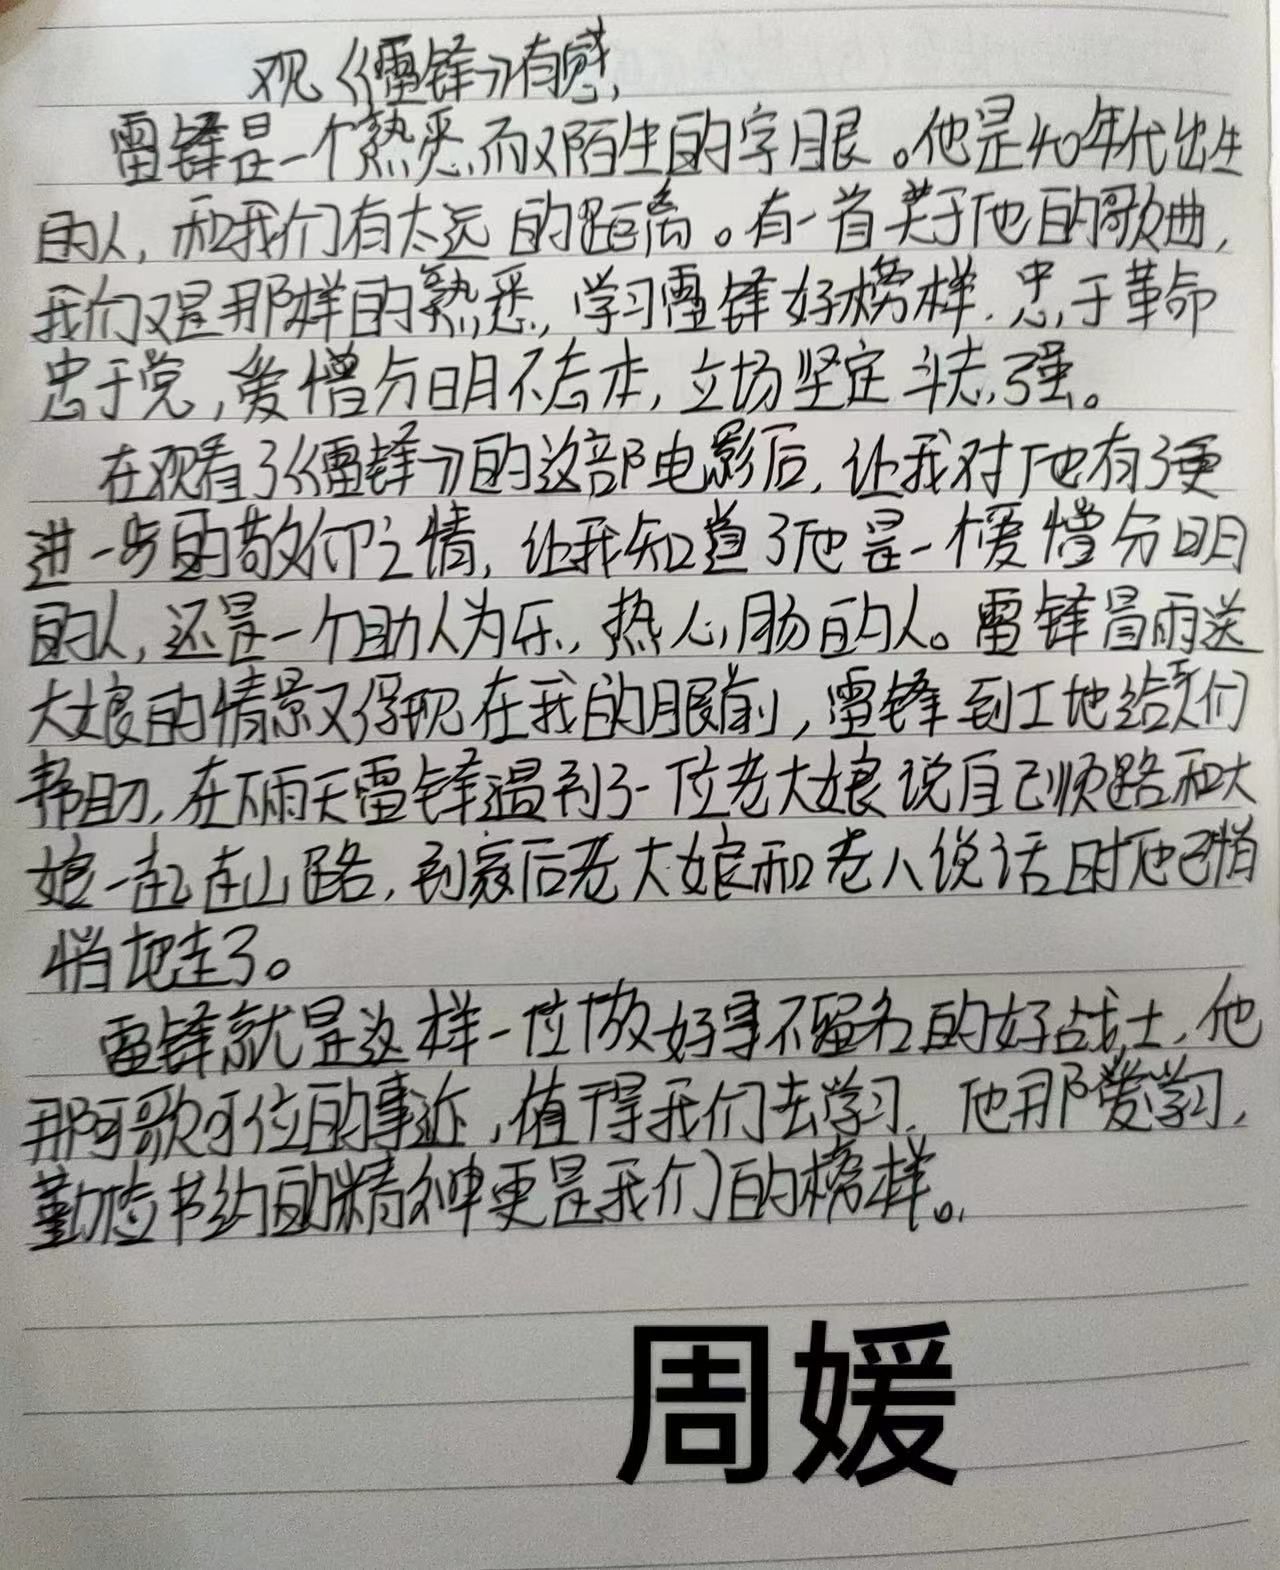 观《雷锋》有感
雷锋是一个熟悉而又陌生的字眼。他是40年代出生
的人,和我们有太远的距离。有一首关于他的歌曲,
我们又是那样的熟悉,学习雷锋好榜样.忠于革命
忠于党,爱憎分明不忘本,立场坚定斗志强。
在观看了《雷锋》的这部电影后,让我对他有了更
进一步的敬仰之情,让我知道了他是一个爱憎分明
的人,还是一个助人为乐,热心肠的人。雷锋冒雨送
大娘的情景又浮现在我的眼前,雷锋到工地给们
帮助,在下雨天雷锋遇到了一位老大娘说自己顺路和大
娘一起走山路,到家后老大娘和老人说话时他已悄
悄地走了。
雷锋就是这样一位做好事不留名的好战士,他
那可歌可位的事迹,值得我们去学习.他那爱学习,
勤俭节约的精神更是我们的榜样。
周媛